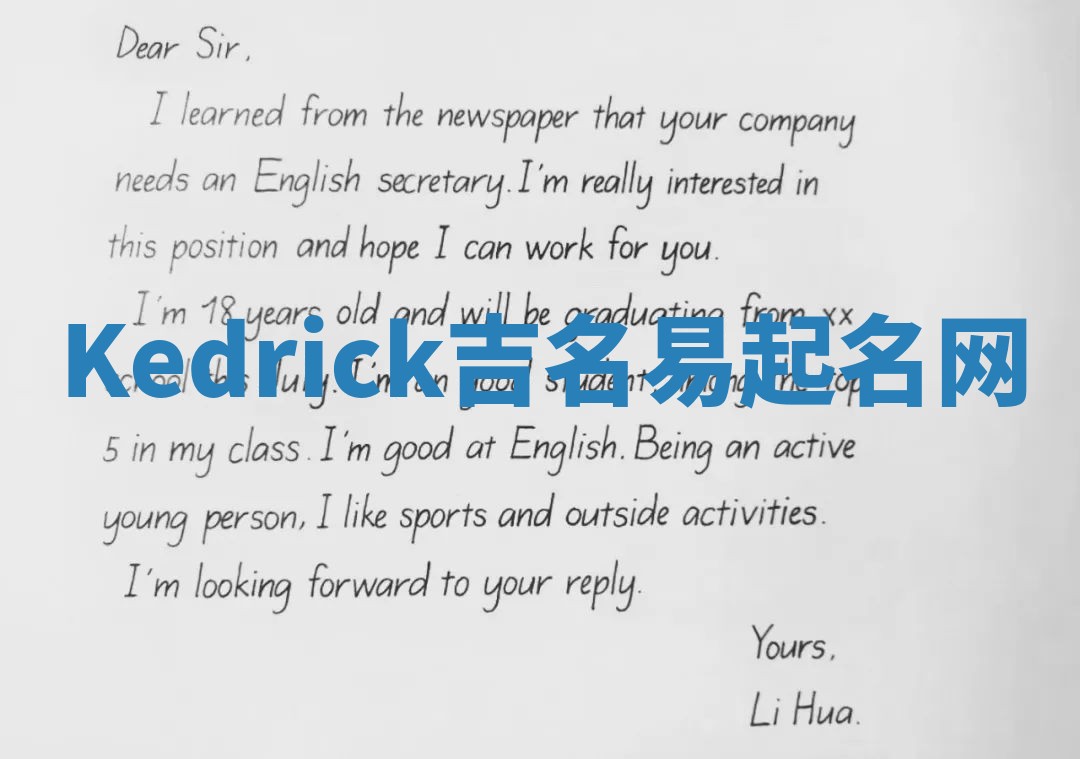 Dear Sir,
I learned from the newspaper that your company
needs an English secretary. I'm really interested in
this position and hope I can work for you.
I'm 18 years old and will be graduating from xx
Kedrick吉名易起名网
school this July. I'm an good student among the top
5 in my class. I'm good at English. Being an active
young person, I like sports and outside activities.
I'm looking forward to your reply.
Yours,
Li Hua.